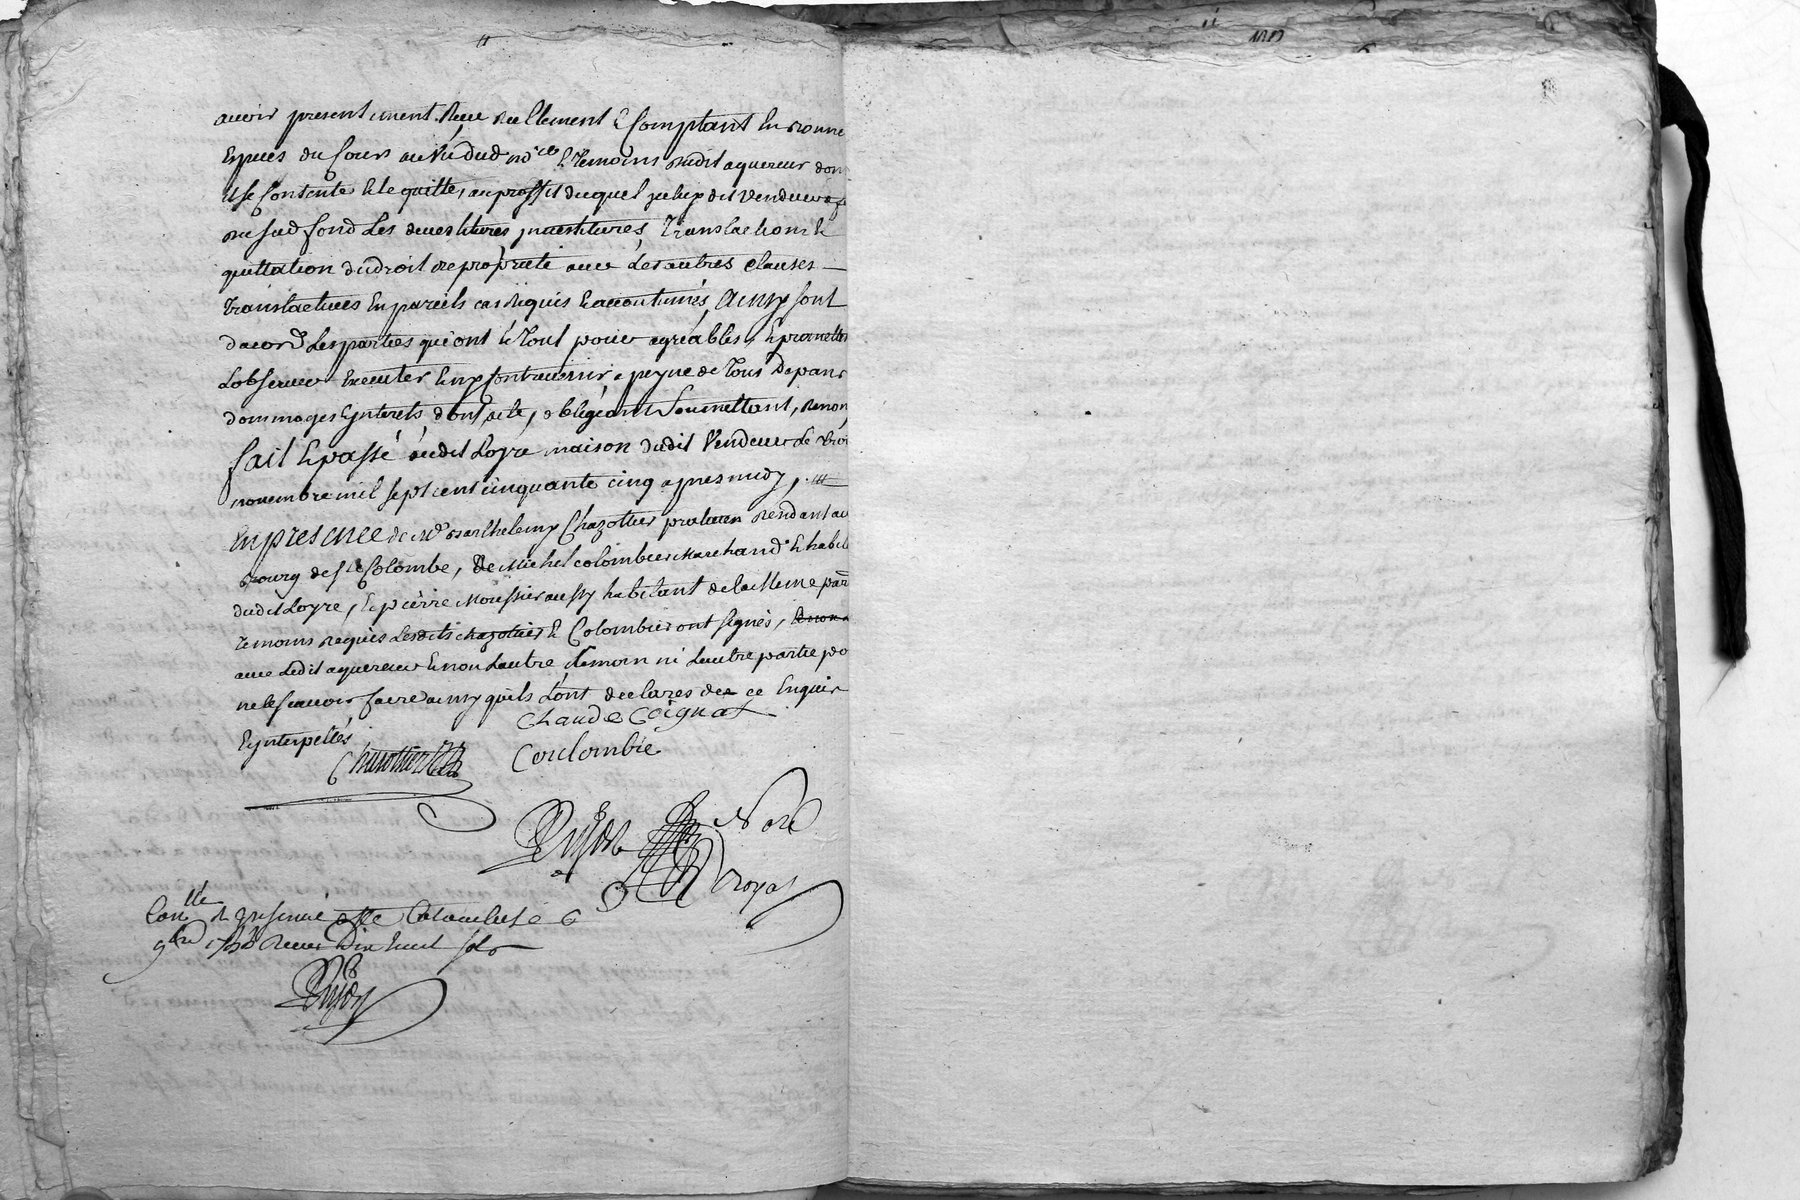 avoir presentement Reçu reellement & Comptant En bonne
Especes du Cours au Vû dud no.re & Temoins dudit aquereur dont
il se Contente & le quitte, au proffit duquel icelux dit vendeur
du sud fond Les devestitures, investitures, Translations &
quittation du droit de proprieté avec Les autres clauses
Translactives En pareils cas Requis & accoutumés, Ainsy sont
dacord Les parties qui ont Le Tout pour agréable, & promettent
Lobserver Executer & ny Contrevenir a peyne de Tous Depans
dommages & ynterets, dont acte, obligeant Soumettant, Renon
fait & passé audit Loyre maison dudit Vendeur Le
novembre mil sept cent cinquante cinq apres midy,
En presence de Me Barthelemy Chazottier praticien Residant au
Bourg de ste Colombe, De Michel colombier Marchand & habit
dudit Loyre, & pierre Moussier aussy habitant de la Meme par
Temoins Requis Lesdits chazottier & Colombier ont signés,
avec Ledit aquereur & non Lautre Temoin ni Lautre partie po
ne le scavoir faire ainsy quils L'ont declares de ce Enquis
& ynterpellés
Claude Coignat
Chazottier Coulombié
Nore
Royal
Conlle & insinué a ste Colombe le 6
9bre 1755 Receu Dix huit sols